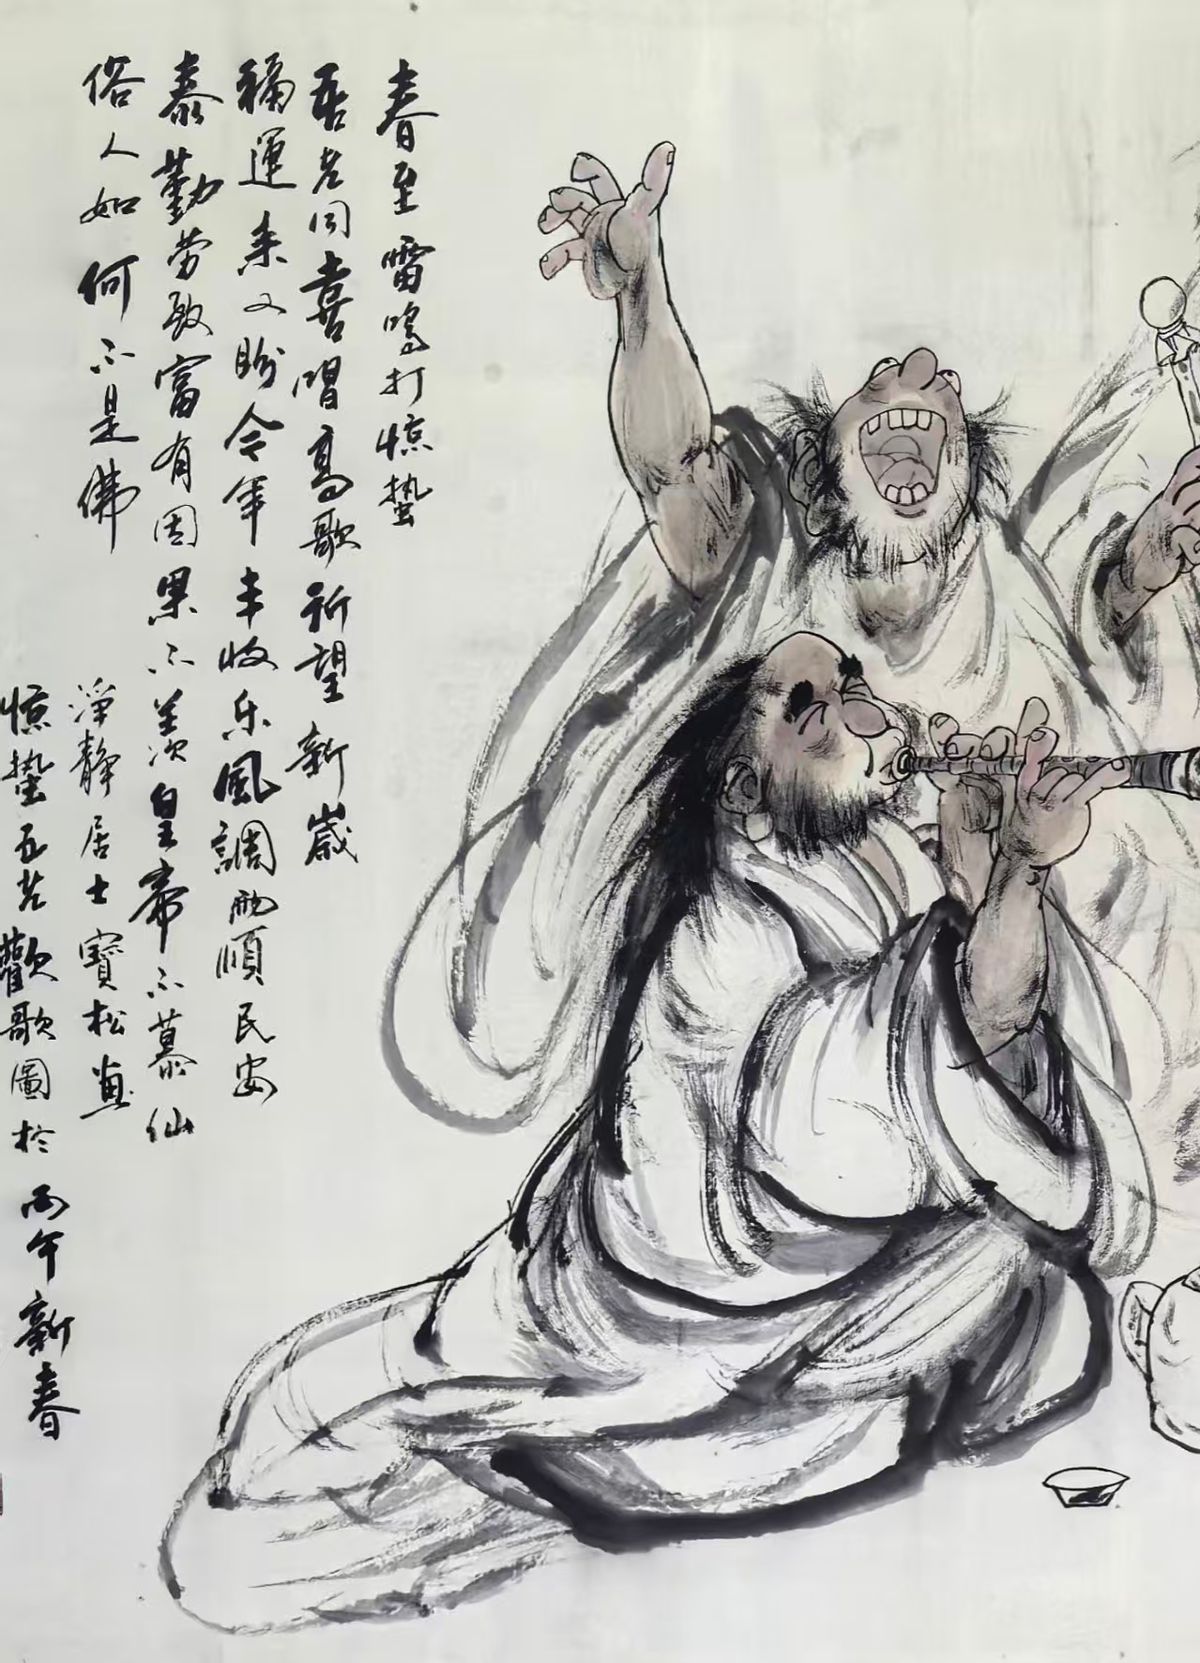 春至雷鸣打惊蛰
吾老同喜唱高歌祈望新歲
福運来又盼今年丰收乐風調雨順民安
泰勤劳致富有因果不羡皇帝不慕仙
俗人如何不是佛
淨静居士寶松画
惊蛰五老歡歌圖於丙午新春